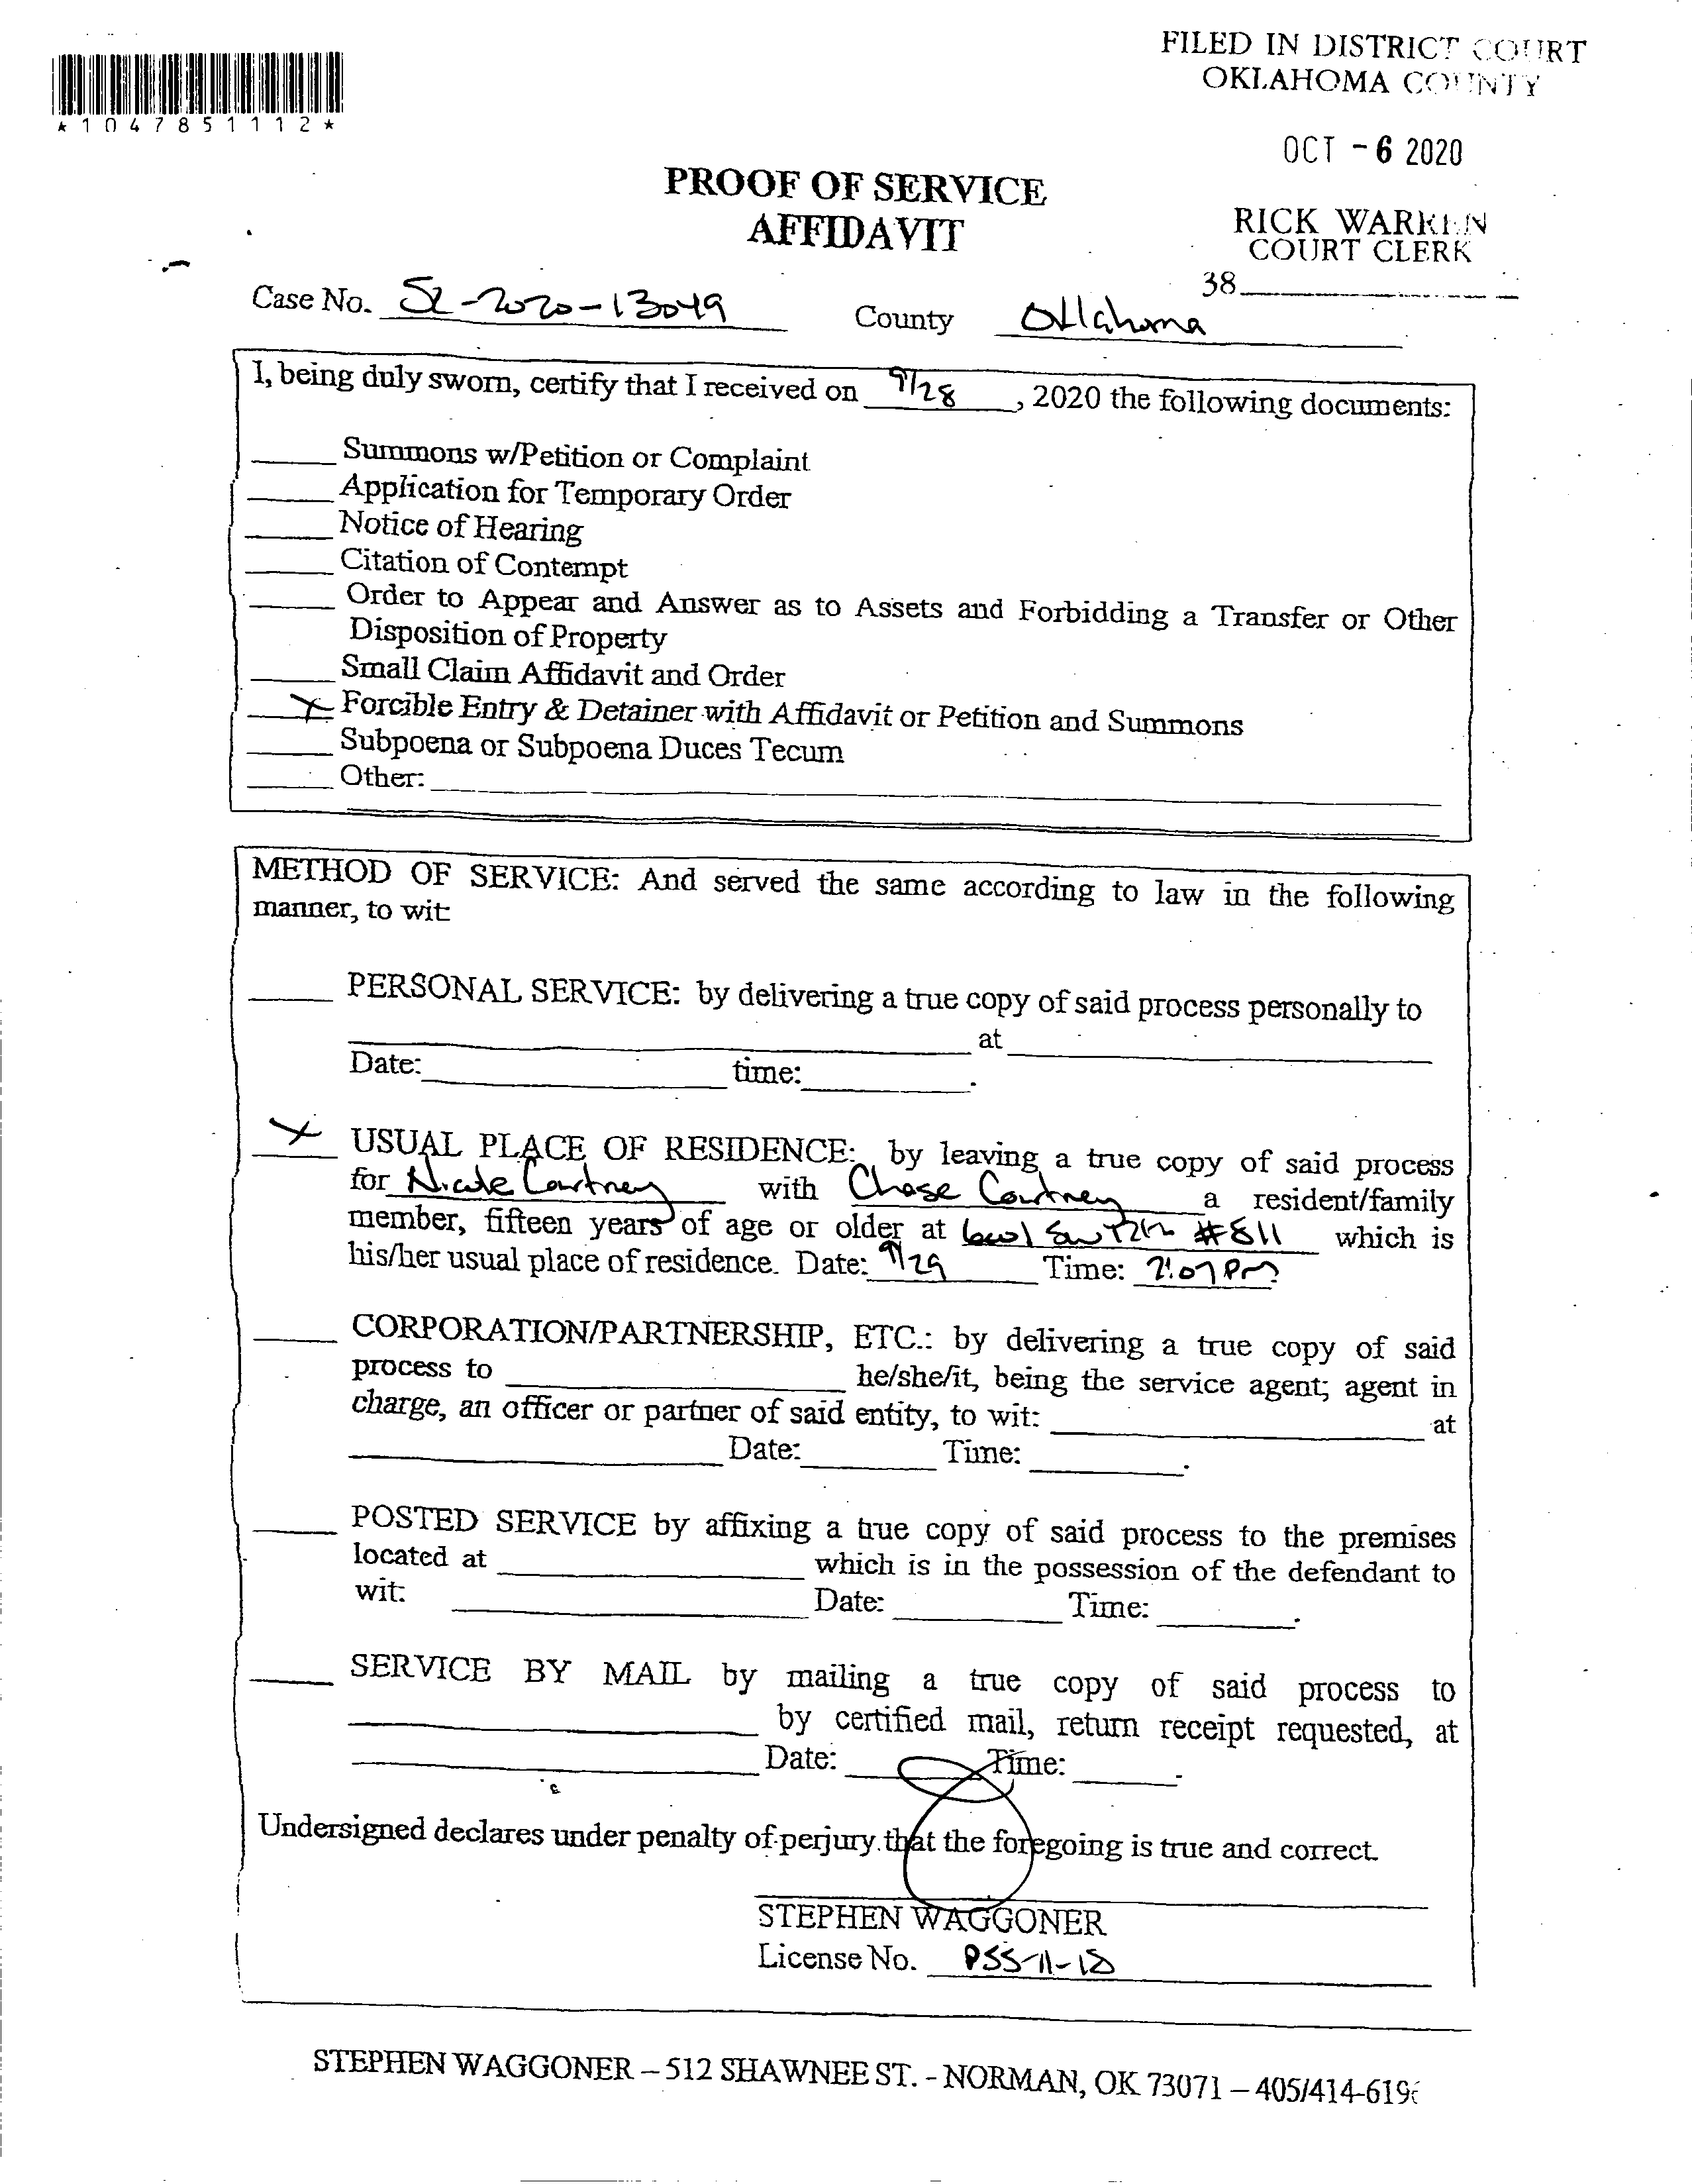 FILED IN DISTRICT COURT
OKLAHOMA COUNTY
*1047851112*
OCT - 6 2020
PROOF OF SERVICE
AFFIDAVIT
RICK WARREN
COURT CLERK
38
Case No. SC-2020-13049 County Oklahoma
I, being duly sworn, certify that I received on 9/28, 2020 the following documents:
Summons w/Petition or Complaint
Application for Temporary Order
Notice of Hearing
Citation of Contempt
Order to Appear and Answer as to Assets and Forbidding a Transfer or Other
Disposition of Property
Small Claim Affidavit and Order
X Forcible Entry & Detainer with Affidavit or Petition and Summons
Subpoena or Subpoena Duces Tecum
Other:
METHOD OF SERVICE: And served the same according to law in the following
manner, to wit:
PERSONAL SERVICE: by delivering a true copy of said process personally to
at
Date: time: .
X USUAL PLACE OF RESIDENCE: by leaving a true copy of said process
for Nicole Courtney with Chase Courtney a resident/family
member, fifteen years of age or older at SW #811 which is
his/her usual place of residence. Date: 9/29 Time:
CORPORATION/PARTNERSHIP, ETC.: by delivering a true copy of said
process to he/she/it, being the service agent; agent in
charge, an officer or partner of said entity, to wit: at
Date: Time: .
POSTED SERVICE by affixing a true copy of said process to the premises
located at which is in the possession of the defendant to
wit: Date: Time: .
SERVICE BY MAIL by mailing a true copy of said process to
by certified mail, return receipt requested, at
Date: Time: .
Undersigned declares under penalty of perjury that the foregoing is true and correct.
STEPHEN WAGGONER
License No. PSS-11-18
STEPHEN WAGGONER – 512 SHAWNEE ST. - NORMAN, OK 73071 – 405/414-619